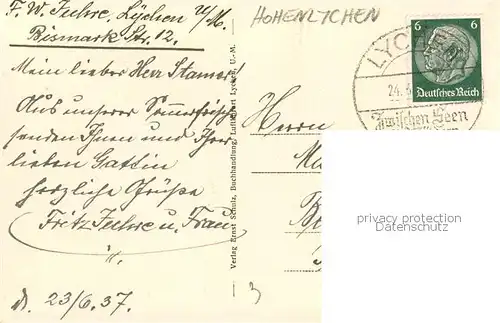 F. W. Fuhre, Lychen U/M.
Bismark Str. 12.
HOHENLYCHEN
Mein lieber Herr Stamer!
Aus unserer Sommerfrische
senden Ihnen und Ihrer
lieben Gattin
herzliche Grüße
Fritz Fuhre u. Frau
d. 23/6.37.
Verlag Ernst Schulz, Buchhandlung, Luftkurort Lychen, U.-M.
Herrn
13
6 6
Deutsches Reich
LYCHEN
24.6
Zwischen Seen
privacy protection
Datenschutz